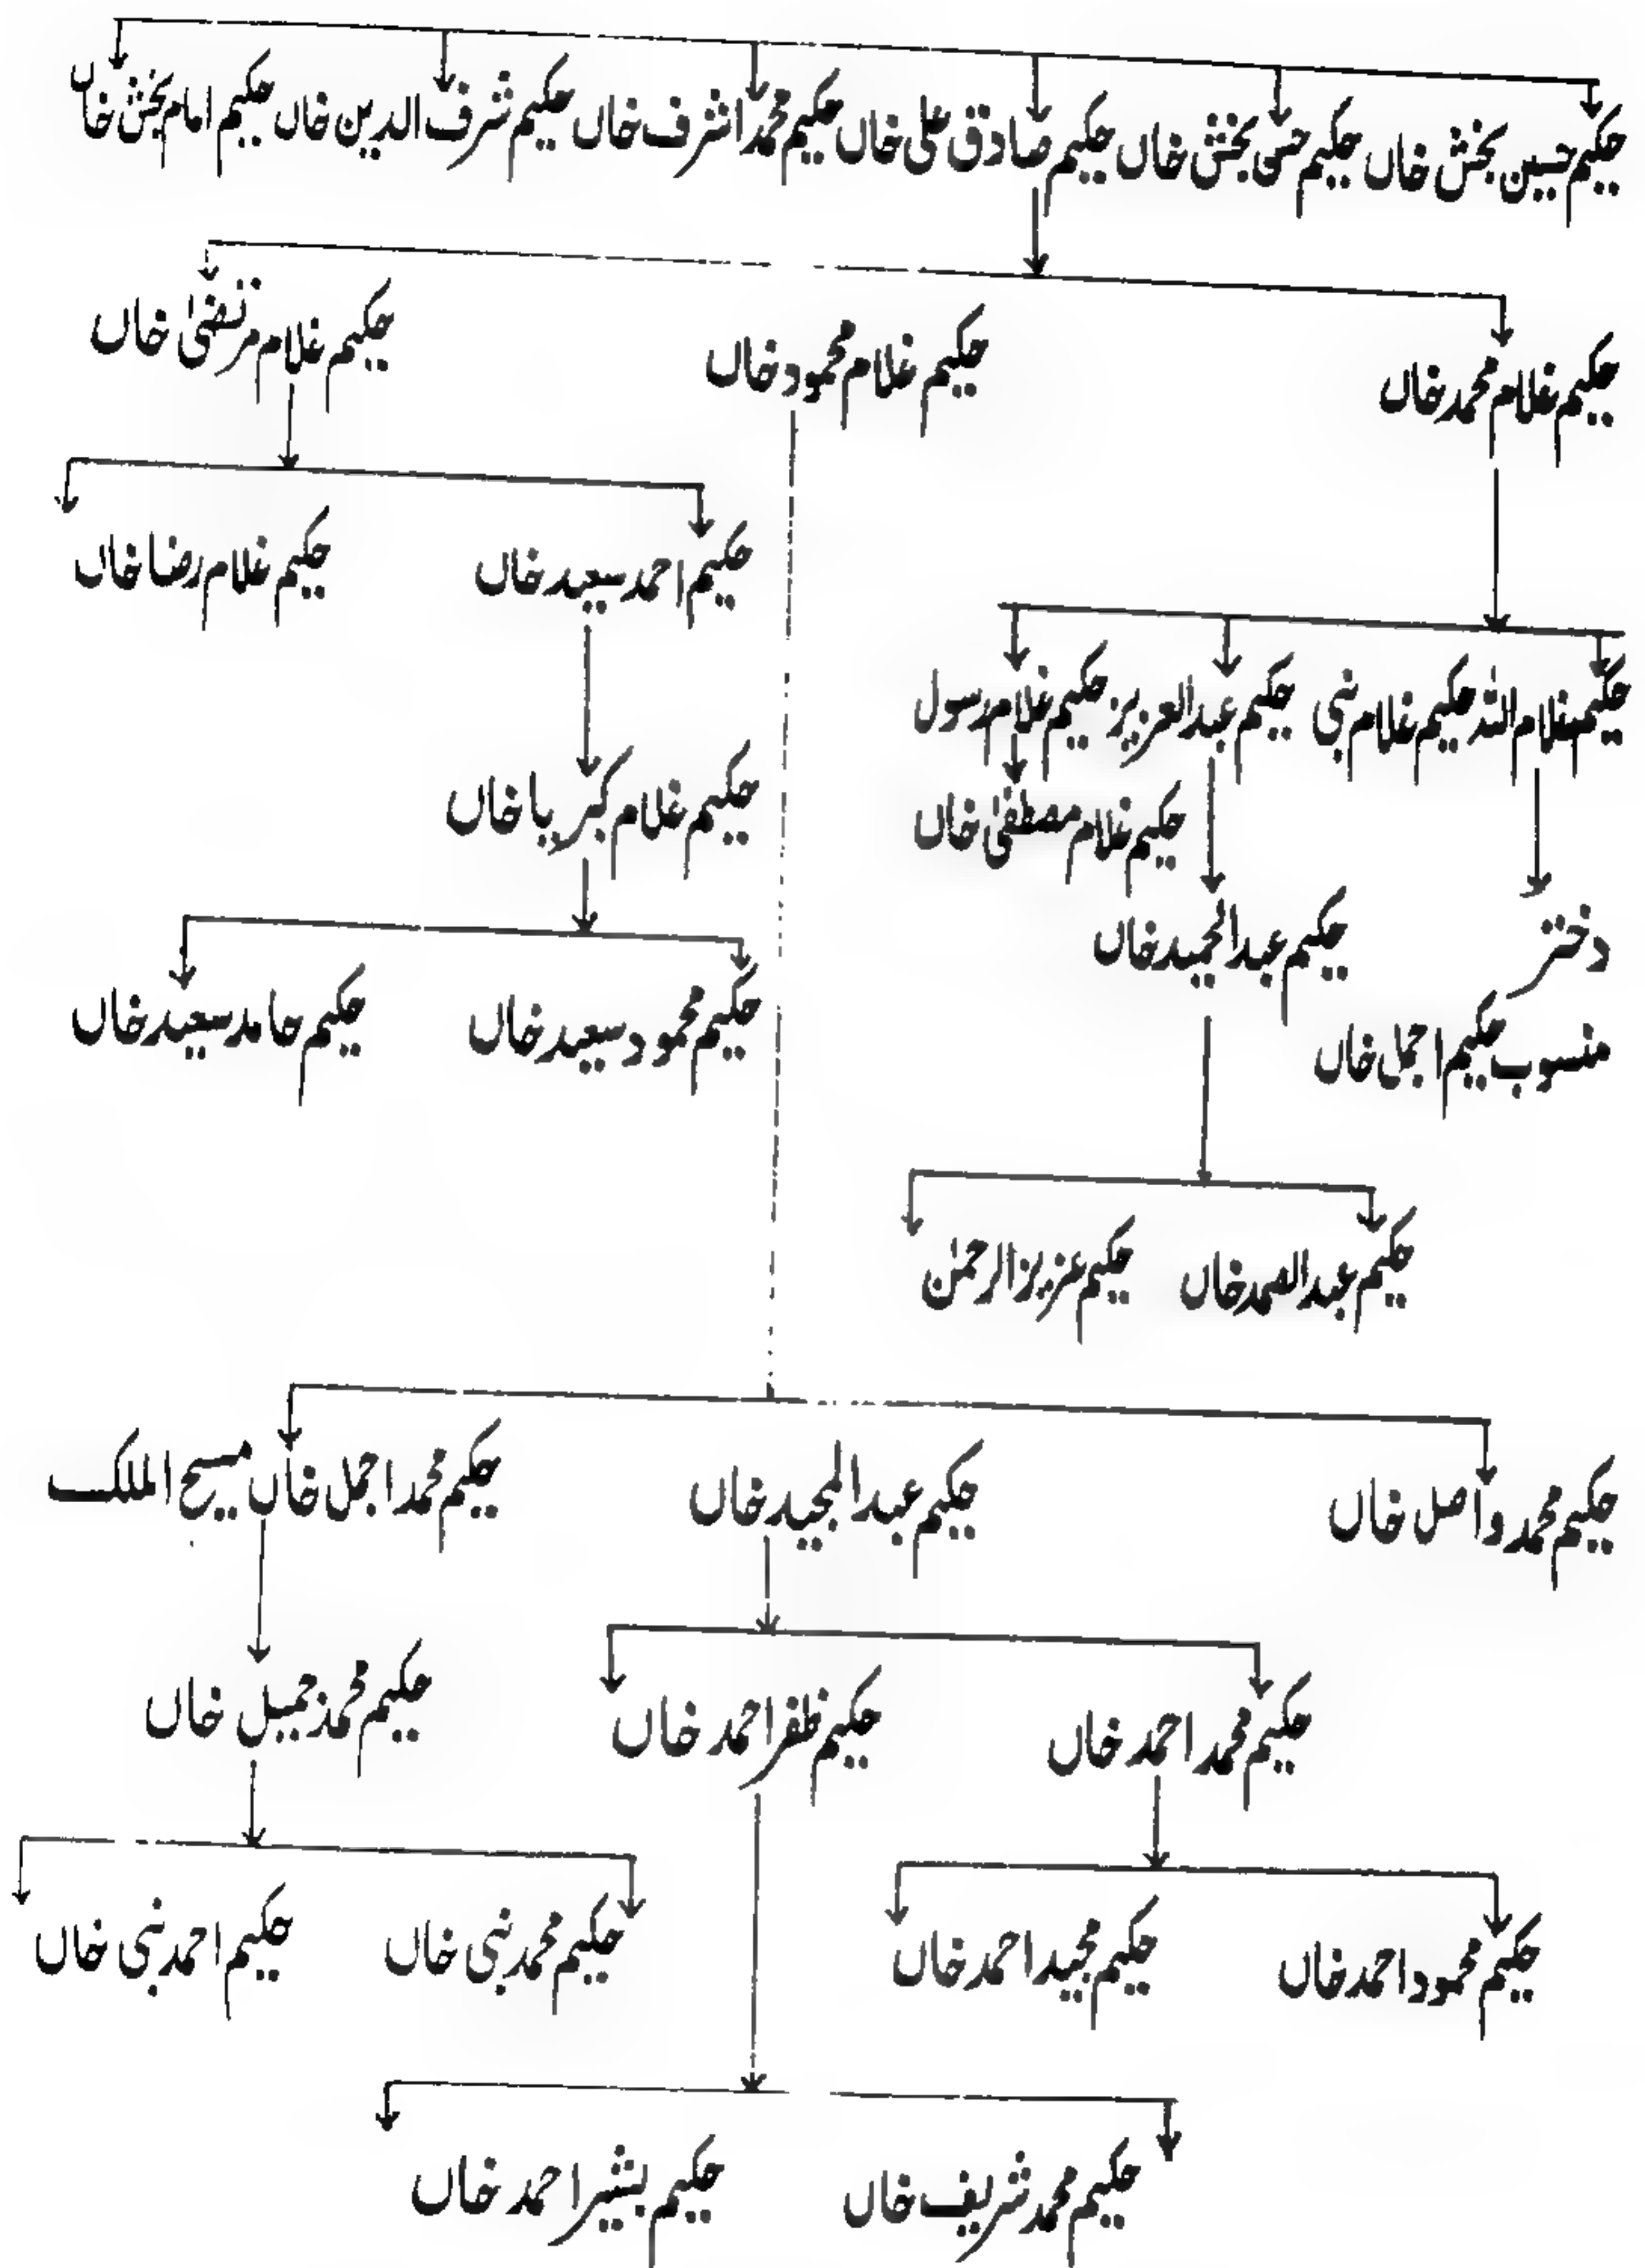 حکیم حسین بخش خاں حکیم حسن بخش خاں حکیم صادق علی خاں حکیم محمد اشرف خاں حکیم شرف الدین خاں حکیم امام بخش خاں
حکیم غلام محمد خاں حکیم غلام محمود خاں حکیم غلام مرتضیٰ خاں
حکیم احمد سعید خاں حکیم غلام رضا خاں
حکیم غلام اللہ حکیم غلام نبی حکیم عبد العزیز حکیم غلام رسول
حکیم غلام مصطفیٰ خاں حکیم غلام کبریا خاں
دختر حکیم عبد الحمید خاں
منسوب حکیم اجمل خاں حکیم محمود سعید خاں حکیم حامد سعید خاں
حکیم عبد الصمد خاں حکیم عزیز الرحمٰن
حکیم محمد واصل خاں حکیم عبد المجید خاں حکیم محمد اجمل خاں مسیح الملک
حکیم محمد احمد خاں حکیم ظفر احمد خاں حکیم محمد جمیل خاں
حکیم محمود احمد خاں حکیم مجید احمد خاں حکیم محمد نبی خاں حکیم احمد نبی خاں
حکیم محمد شریف خاں حکیم بشیر احمد خاں